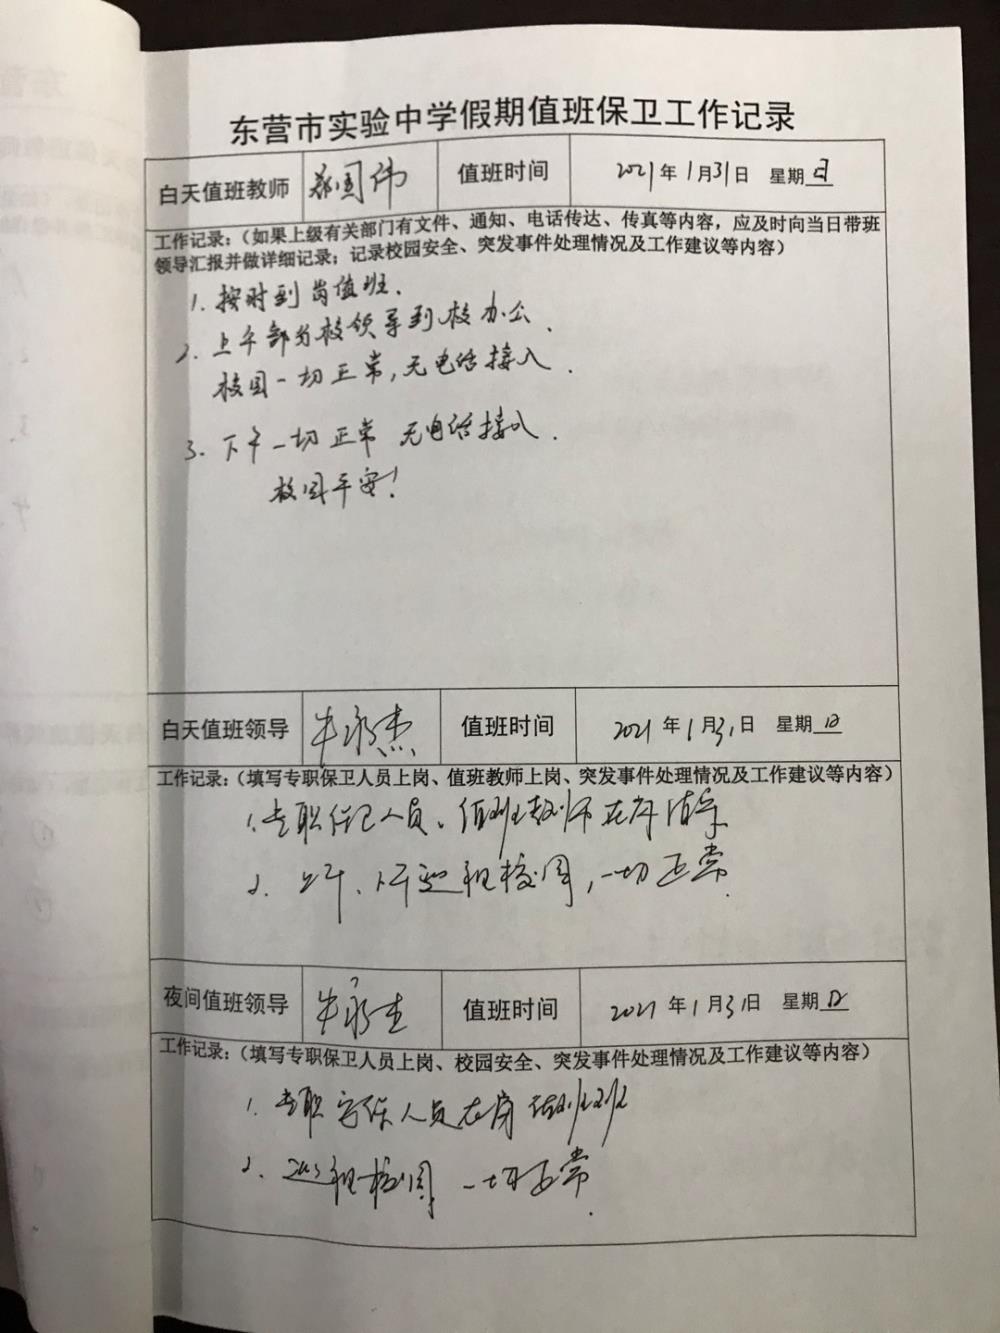 东营市实验中学假期值班保卫工作记录
白天值班教师 郑国伟 值班时间 2021年1月31日 星期日
工作记录:(如果上级有关部门有文件、通知、电话传达、传真等内容,应及时向当日带班
领导汇报并做详细记录;记录校园安全、突发事件处理情况及工作建议等内容)
1. 按时到岗值班.
2. 上午部分校领导到校办公.
校园一切正常,无电话接入.
3. 下午一切正常 无电话接入.
校园平安!
白天值班领导 牛永杰 值班时间 2021年1月31日 星期日
工作记录:(填写专职保卫人员上岗、值班教师上岗、突发事件处理情况及工作建议等内容)
1. 专职 人员、值班教师在岗
2. 上午、下午巡视校园,一切正常.
夜间值班领导 牛永杰 值班时间 2021年1月31日 星期日
工作记录:(填写专职保卫人员上岗、校园安全、突发事件处理情况及工作建议等内容)
1. 专职安保人员在岗
2. 巡视校园 一切正常.